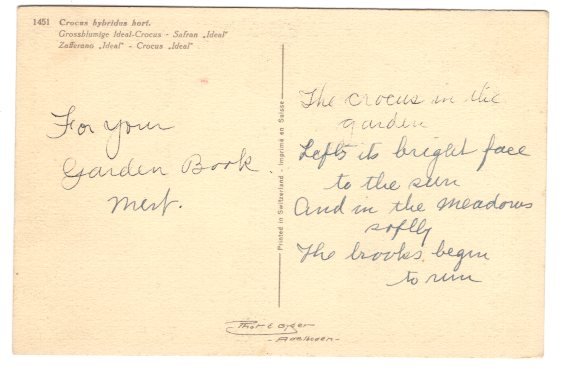 1451 Crocus hybridus hort.
Grossblumige Ideal-Crocus - Safran „Ideal"
Zafferano „Ideal" - Crocus „Ideal"
For your
Garden Book.
Printed in Switzerland - Imprimé en Suisse
The crocus in the
garden
Lefts its bright face
to the sun
And in the meadows
softly
The brooks begin
to run
Adelboden